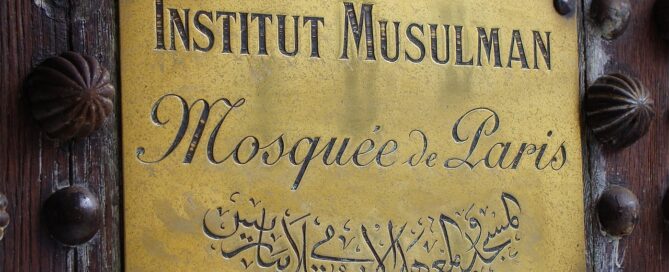 INSTITUT MUSULMAN
Mosquée de Paris
المسجد و المعهد الإسلامي بباريس